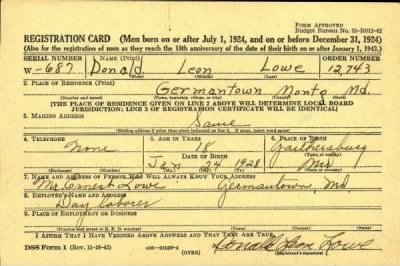 Form Approved
Budget Bureau No. 33-R012-42
REGISTRATION CARD (Men born on or after July 1, 1924, and on or before December 31, 1924)
(Also for the registration of men as they reach the 18th anniversary of the date of their birth on or after January 1, 1943.)
SERIAL NUMBER 1. NAME (Print) ORDER NUMBER
W-687 Donald Leon Lowe 12,743
2. PLACE OF RESIDENCE (Print)
Germantown Montg Md.
[THE PLACE OF RESIDENCE GIVEN ON LINE 2 ABOVE WILL DETERMINE LOCAL BOARD
JURISDICTION; LINE 2 OF REGISTRATION CERTIFICATE WILL BE IDENTICAL]
3. MAILING ADDRESS
Same
[Mailing address if other than place indicated on line 2. If same, insert word same]
4. TELEPHONE 5. AGE IN YEARS 6. PLACE OF BIRTH
None 18 Gaithersburg
DATE OF BIRTH
Jan 24 1928 Md
7. NAME AND ADDRESS OF PERSON WHO WILL ALWAYS KNOW YOUR ADDRESS
Mr. Ernest Lowe Germantown, Md
8. EMPLOYER'S NAME AND ADDRESS
Day laborer
9. PLACE OF EMPLOYMENT OR BUSINESS
I AFFIRM THAT I HAVE VERIFIED ABOVE ANSWERS AND THAT THEY ARE TRUE.
DSS Form 1 (Rev. 11-16-42) (OVER) Donald Leon Lowe